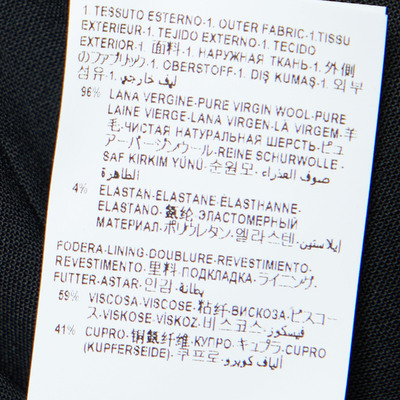 1. TESSUTO ESTERNO-1. OUTER FABRIC-1.TISSU
EXTERIEUR-1. TEJIDO EXTERNO-1. TECIDO
EXTERIOR-1. 面料-1. НАРУЖНАЯ ТКАНЬ-1. 外側
のファブリック-1. OBERSTOFF-1. DIŞ KUMAŞ-1. 외부
섬유-1. ليف خارجي
96% LANA VERGINE-PURE VIRGIN WOOL-PURE
LAINE VIERGE-LANA VIRGEN-LÀ VIRGEM-羊
毛-ЧИСТАЯ НАТУРАЛЬНАЯ ШЕРСТЬ-ピュ
アーバージンウール-REINE SCHURWOLLE-
SAF KIRKIM YÜNÜ-순원모-صوف العذراء
الطاهرة
4% ELASTAN-ELASTANE-ELASTHANNE-
ELASTANO-氨纶-ЭЛАСТОМЕРНЫЙ
МАТЕРИАЛ-ポリウレタン-엘라스텐-إيلاستين
FODERA-LINING-DOUBLURE-REVESTIMIENTO-
REVESTIMENTO-里料-ПОДКЛАДКА-ライニング-
FUTTER-ASTAR-안감-بطانة
59% VISCOSA-VISCOSE-粘纤-ВИСКОЗА-ビスコー
ス-VISKOSE-VİSKOZ-비스코스-فيسكوز
41% CUPRO-铜氨纤维-КУПРО-キュプラ-CUPRO
(KUPFERSEIDE)-쿠프로-ألياف كوبرو